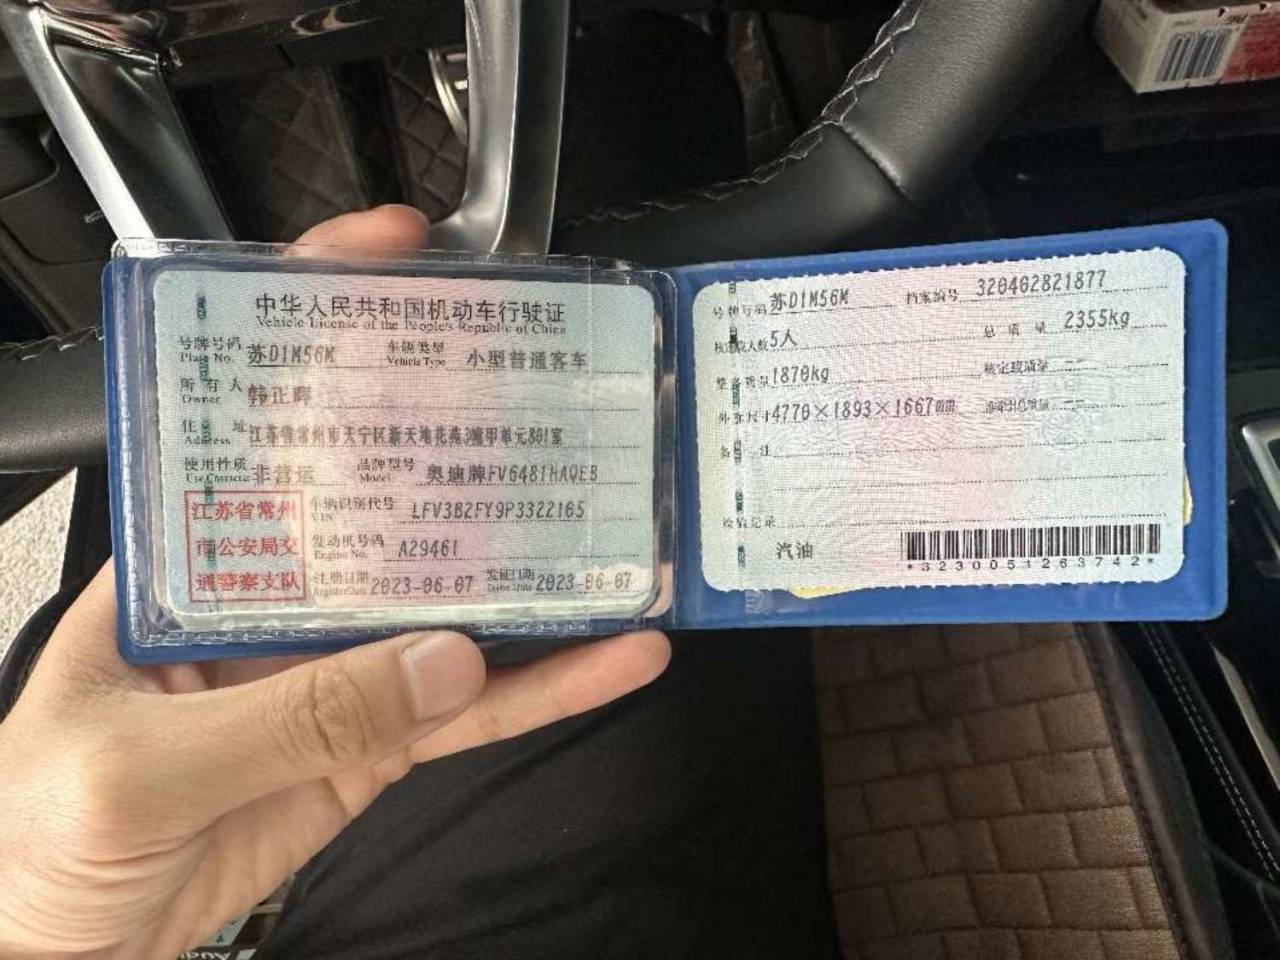 中华人民共和国机动车行驶证
Vehicle License of the People's Republic of China
号牌号码 苏D1M56M 车辆类型 小型普通客车
Plate No. Vehicle Type
所有人 韩正晖
Owner
住址 江苏省常州市天宁区新天地花苑3幢甲单元801室
Address
使用性质 非营运 品牌型号 奥迪牌FV6481HAQEB
Use Character Model
江苏省常州
市公安局交
通警察支队
车辆识别代号 LFV3B2FY9P3322165
VIN
发动机号码 A29461
Engine No.
注册日期 2023-06-07 发证日期 2023-06-07
Register Date Issue Date
号牌号码 苏D1M56M 档案编号 320402821877
核定载人数 5人 总质量 2355kg
整备质量 1870kg 核定载质量 --
外廓尺寸 4770×1893×1667mm 准牵引总质量 --
备注
检验记录
汽油
*3230051263742*